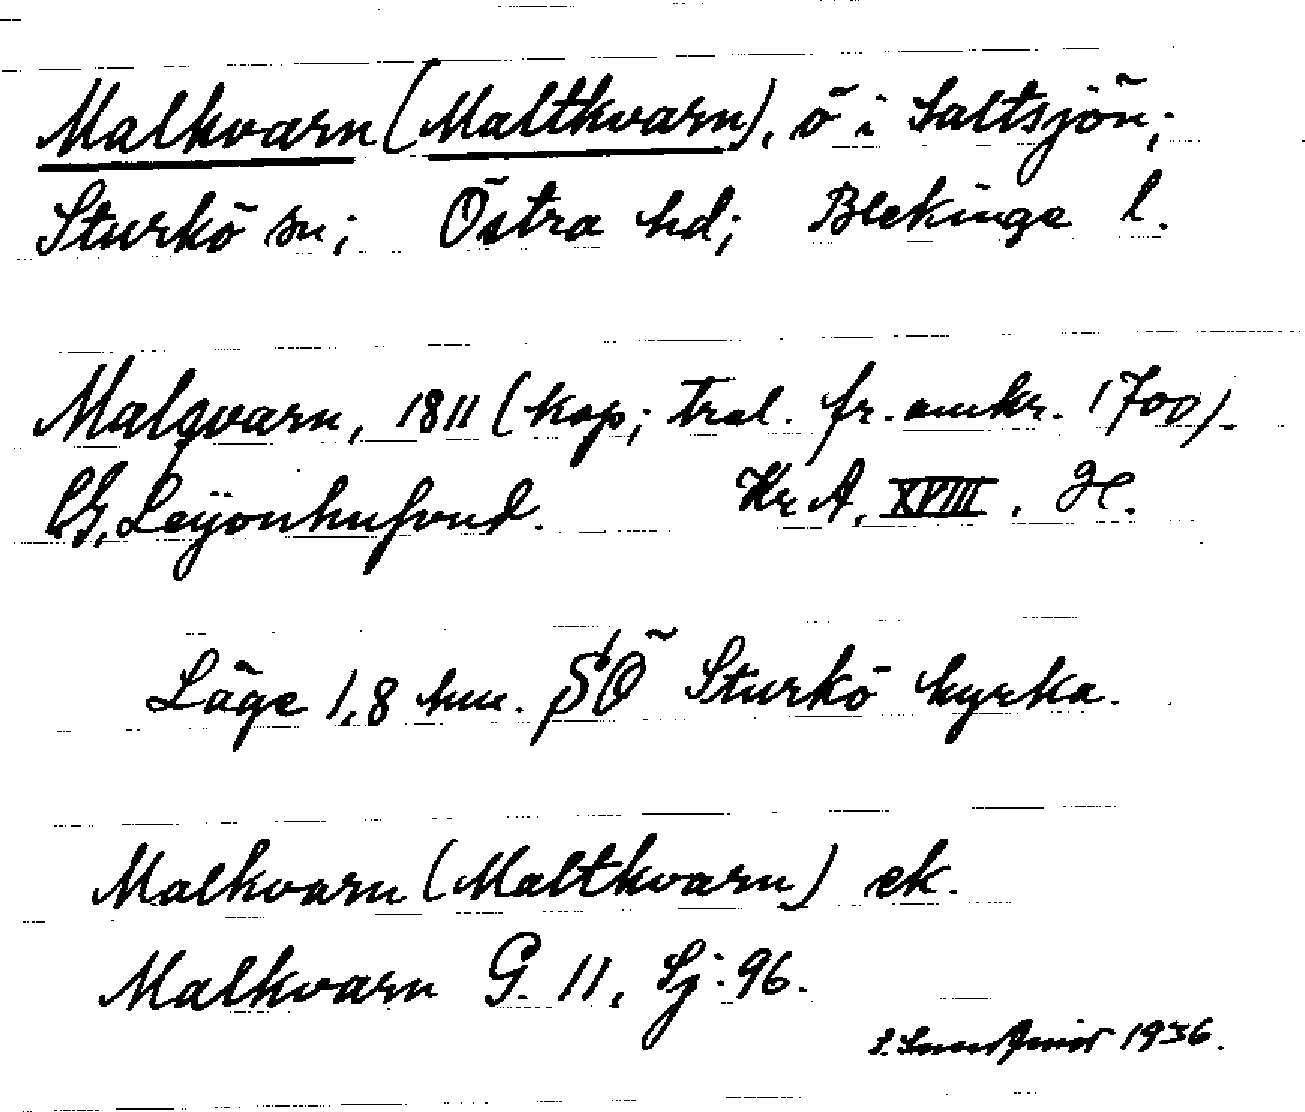 Malkvarn (Maltkvarn), ö i Saltsjön;
Sturkö sn; Östra hd; Blekinge l.
Malqvarn, 1811 (kop; tral. fr. omkr. 1700).
CG, Leijonhufvud. Kr A, XVIII. H.
Läge 1,8 km. SÖ Sturkö kyrka.
Malkvarn (Maltkvarn) ek.
Malkvarn G. 11, Sj: 96.
1936.